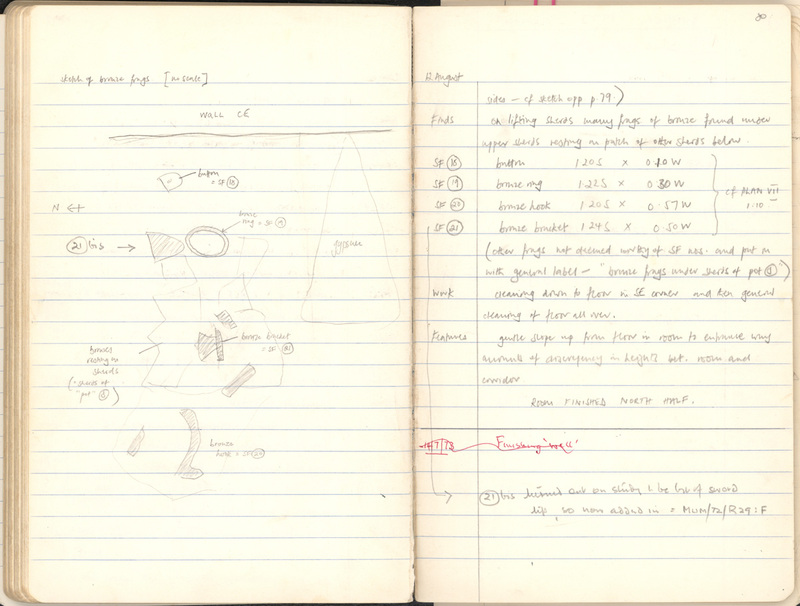 sketch of bronze frags [no scale]
WALL CE
button
= SF 18
N ←+
bronze
ring = SF 19
21 bis →
gypsum
bronze bracket
= SF 21
Bronzes
resting on
sherds
(= sherds of
"pot" 9)
bronze
hook = SF 20
80
12 August
sides – cf sketch opp p.79.)
Finds on lifting sherds many frags of bronze found under
upper sherds resting on patch of other sherds below.
SF 18 button 1.20S × 0.10W
SF 19 bronze ring 1.22S × 0.30W
SF 20 bronze hook 1.20S × 0.57W
SF 21 bronze bracket 1.24S × 0.50W
cf PLAN VII
1:10
(other frags not deemed worthy of SF nos. and put in
with general label – "bronze frags under sherds of pot 9")
Work cleaning down to floor in SE corner and then general
cleaning of floor all over.
Features gentle slope up from floor in room to entrance way
accounts of discrepancy in height bet. room and
corridor
ROOM FINISHED NORTH HALF.
Finishing
21 bis turned out on study to be bit of sword
hip, so now added in = MUM/72/R29:F